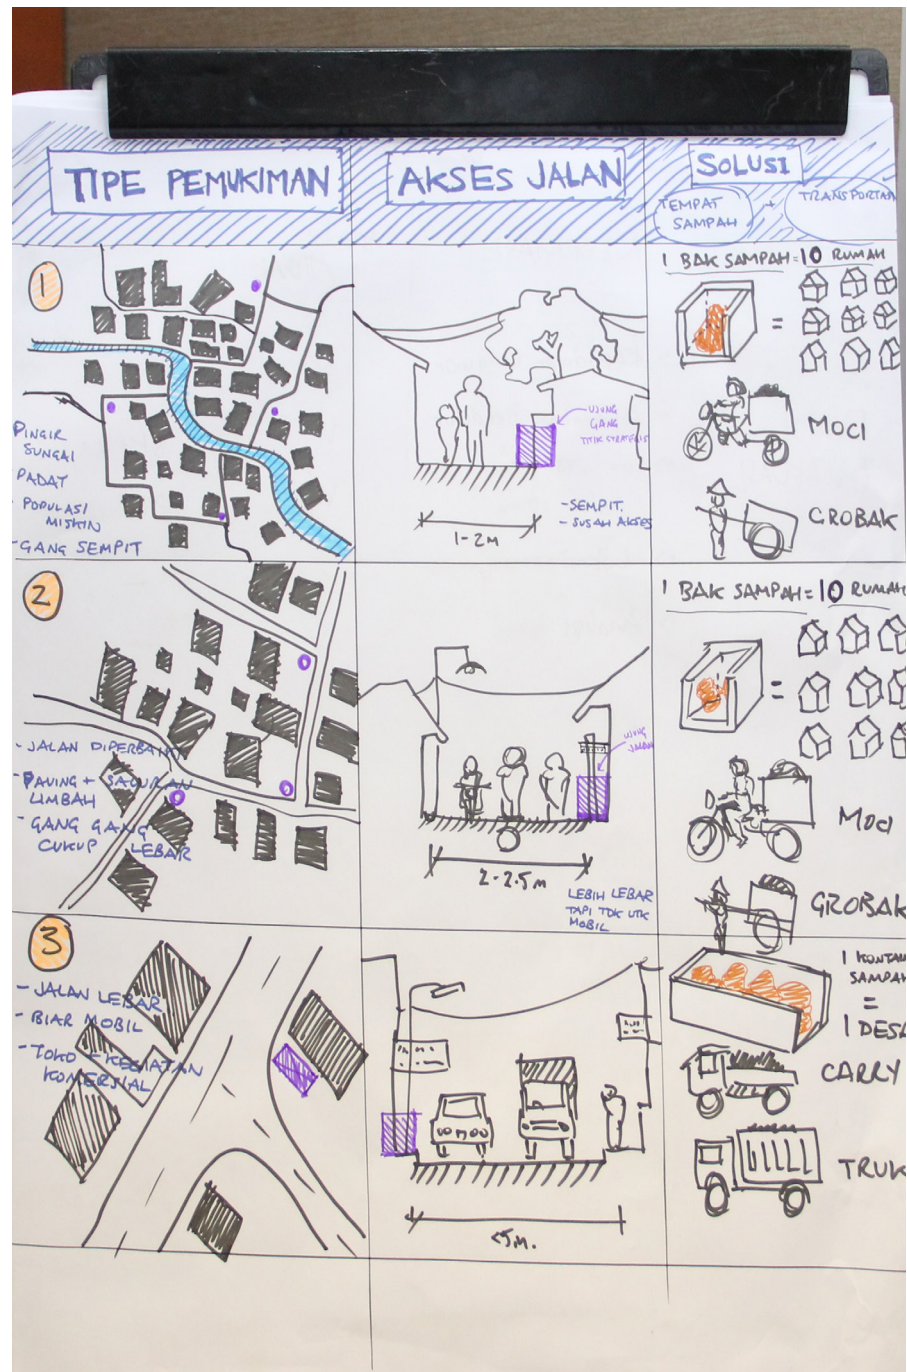 TIPE PEMUKIMAN
AKSES JALAN
SOLUSI
TEMPAT
SAMPAH
+
TRANSPORTASI
1
PINGIR
SUNGAI
PADAT
- POPULASI
MISKIN
- GANG SEMPIT
UJUNG
GANG
TITIK STRATEGIS
- SEMPIT.
- SUSAH AKSES
1-2M
1 BAK SAMPAH = 10 RUMAH
=
MOCI
GROBAK
2
- JALAN DIPERBAIKI
- PAVING + SALURAN
LIMBAH
- GANG GANG
CUKUP LEBAR
UJUNG
JALAN
2-2.5M
LEBIH LEBAR
TAPI TDK UTK
MOBIL
1 BAK SAMPAH = 10 RUMAH
=
MOCI
GROBAK
3
- JALAN LEBAR
- BIAR MOBIL
- TOKO + KEGIATAN
KOMERSIAL
<5M.
1 KONTAI
SAMPAH
=
1 DESA
CARRY
TRUK